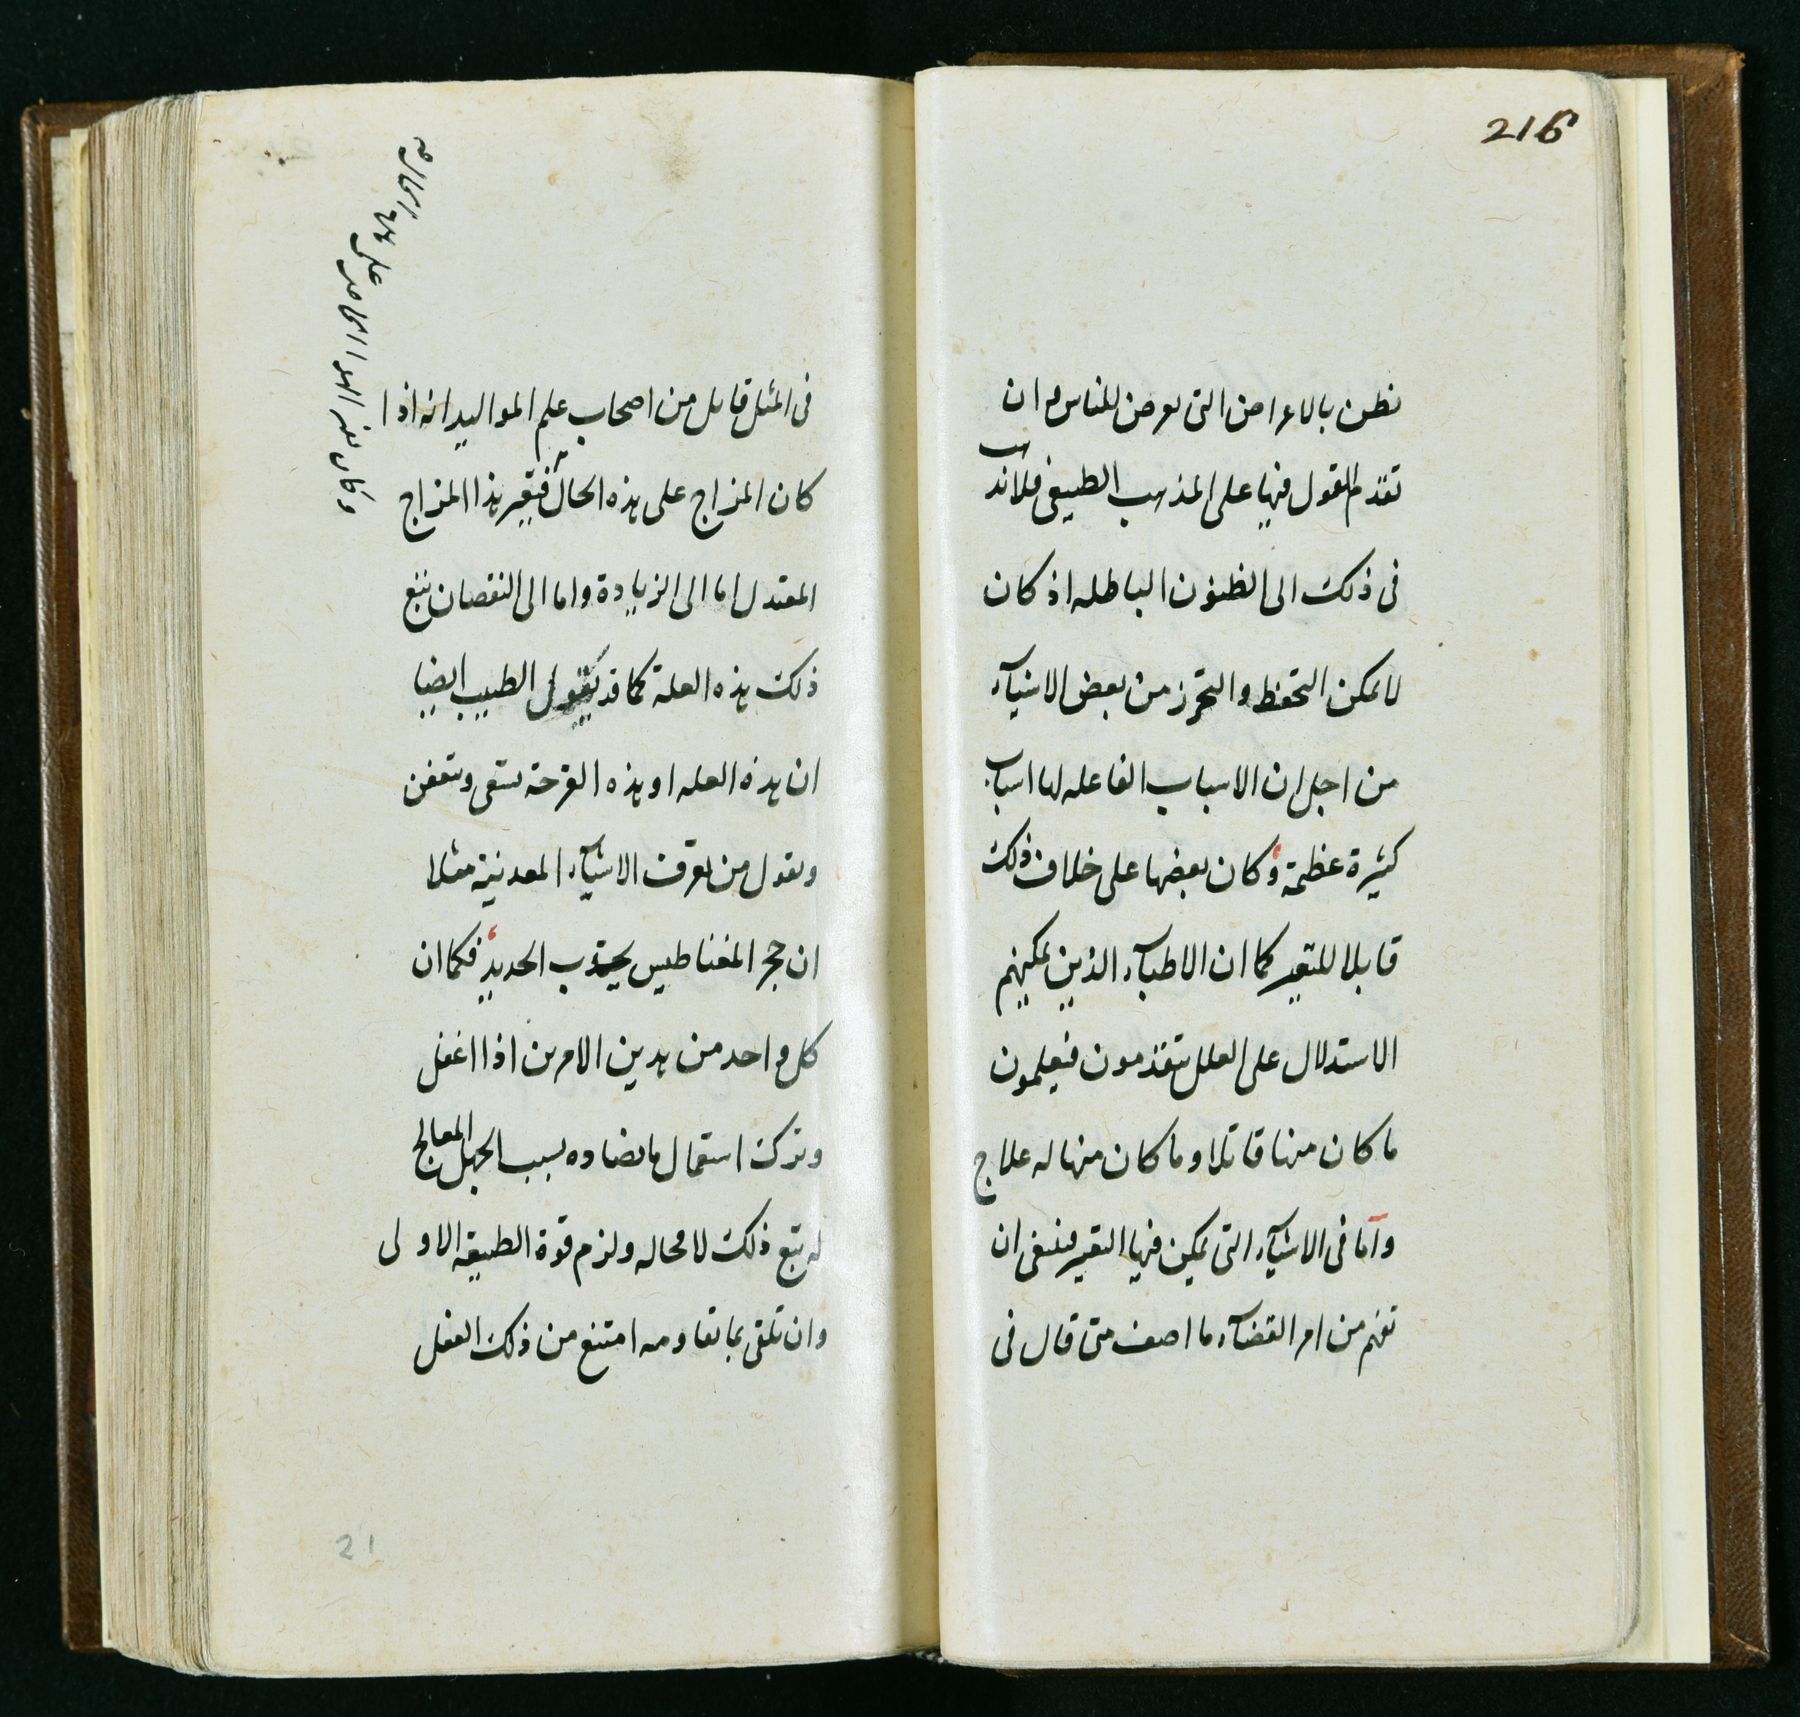 216
نظن بالاعراض التى تعرض للناس و ان
تقدم القول فيها على المذهب الطبيعى فلا
فى ذلك الى الظنون الباطله اذ كان
لا يمكن التحفظ والتحرز من بعض الاشيآء
من اجل ان الاسباب الفاعله لها اسباب
كثيرة عظيمة وكان بعضها على خلاف ذلك
قابلا للتغير كما ان الاطبآء الذين يمكنهم
الاستدلال على العلل يتقدمون فيعلمون
ما كان منها قاتلا وما كان منها له علاج
واما فى الاشيآء التى يمكن فيها التغير فينبغى ان
تفهم من امر القضآء ما اصف متى قال فى
فى المثل قايل من اصحاب علم المواليد انه اذا
كان المزاج على هذه الحال فتغير هذا المزاج
المعتدل اما الى الزيادة واما الى النقصان تبع
ذلك هذه العلة كما قد يقول الطبيب ايضا
ان هذه العله او هذه القرحة تسعى وتتعفن
ويقول من يعرف الاشيآء المعدنية مثلا
ان حجر المغناطيس يجذب الحديد فكما ان
كل واحد من هذين الامرين اذا اغفل
وترك استعمال ما يضاده بسبب الجهل المعالج
له تبع ذلك لا محاله ولزم قوة الطبيعة الاولى
وان تلقى بما يقاومه امتنع من ذلك الفعل
وكان الهوا على
21